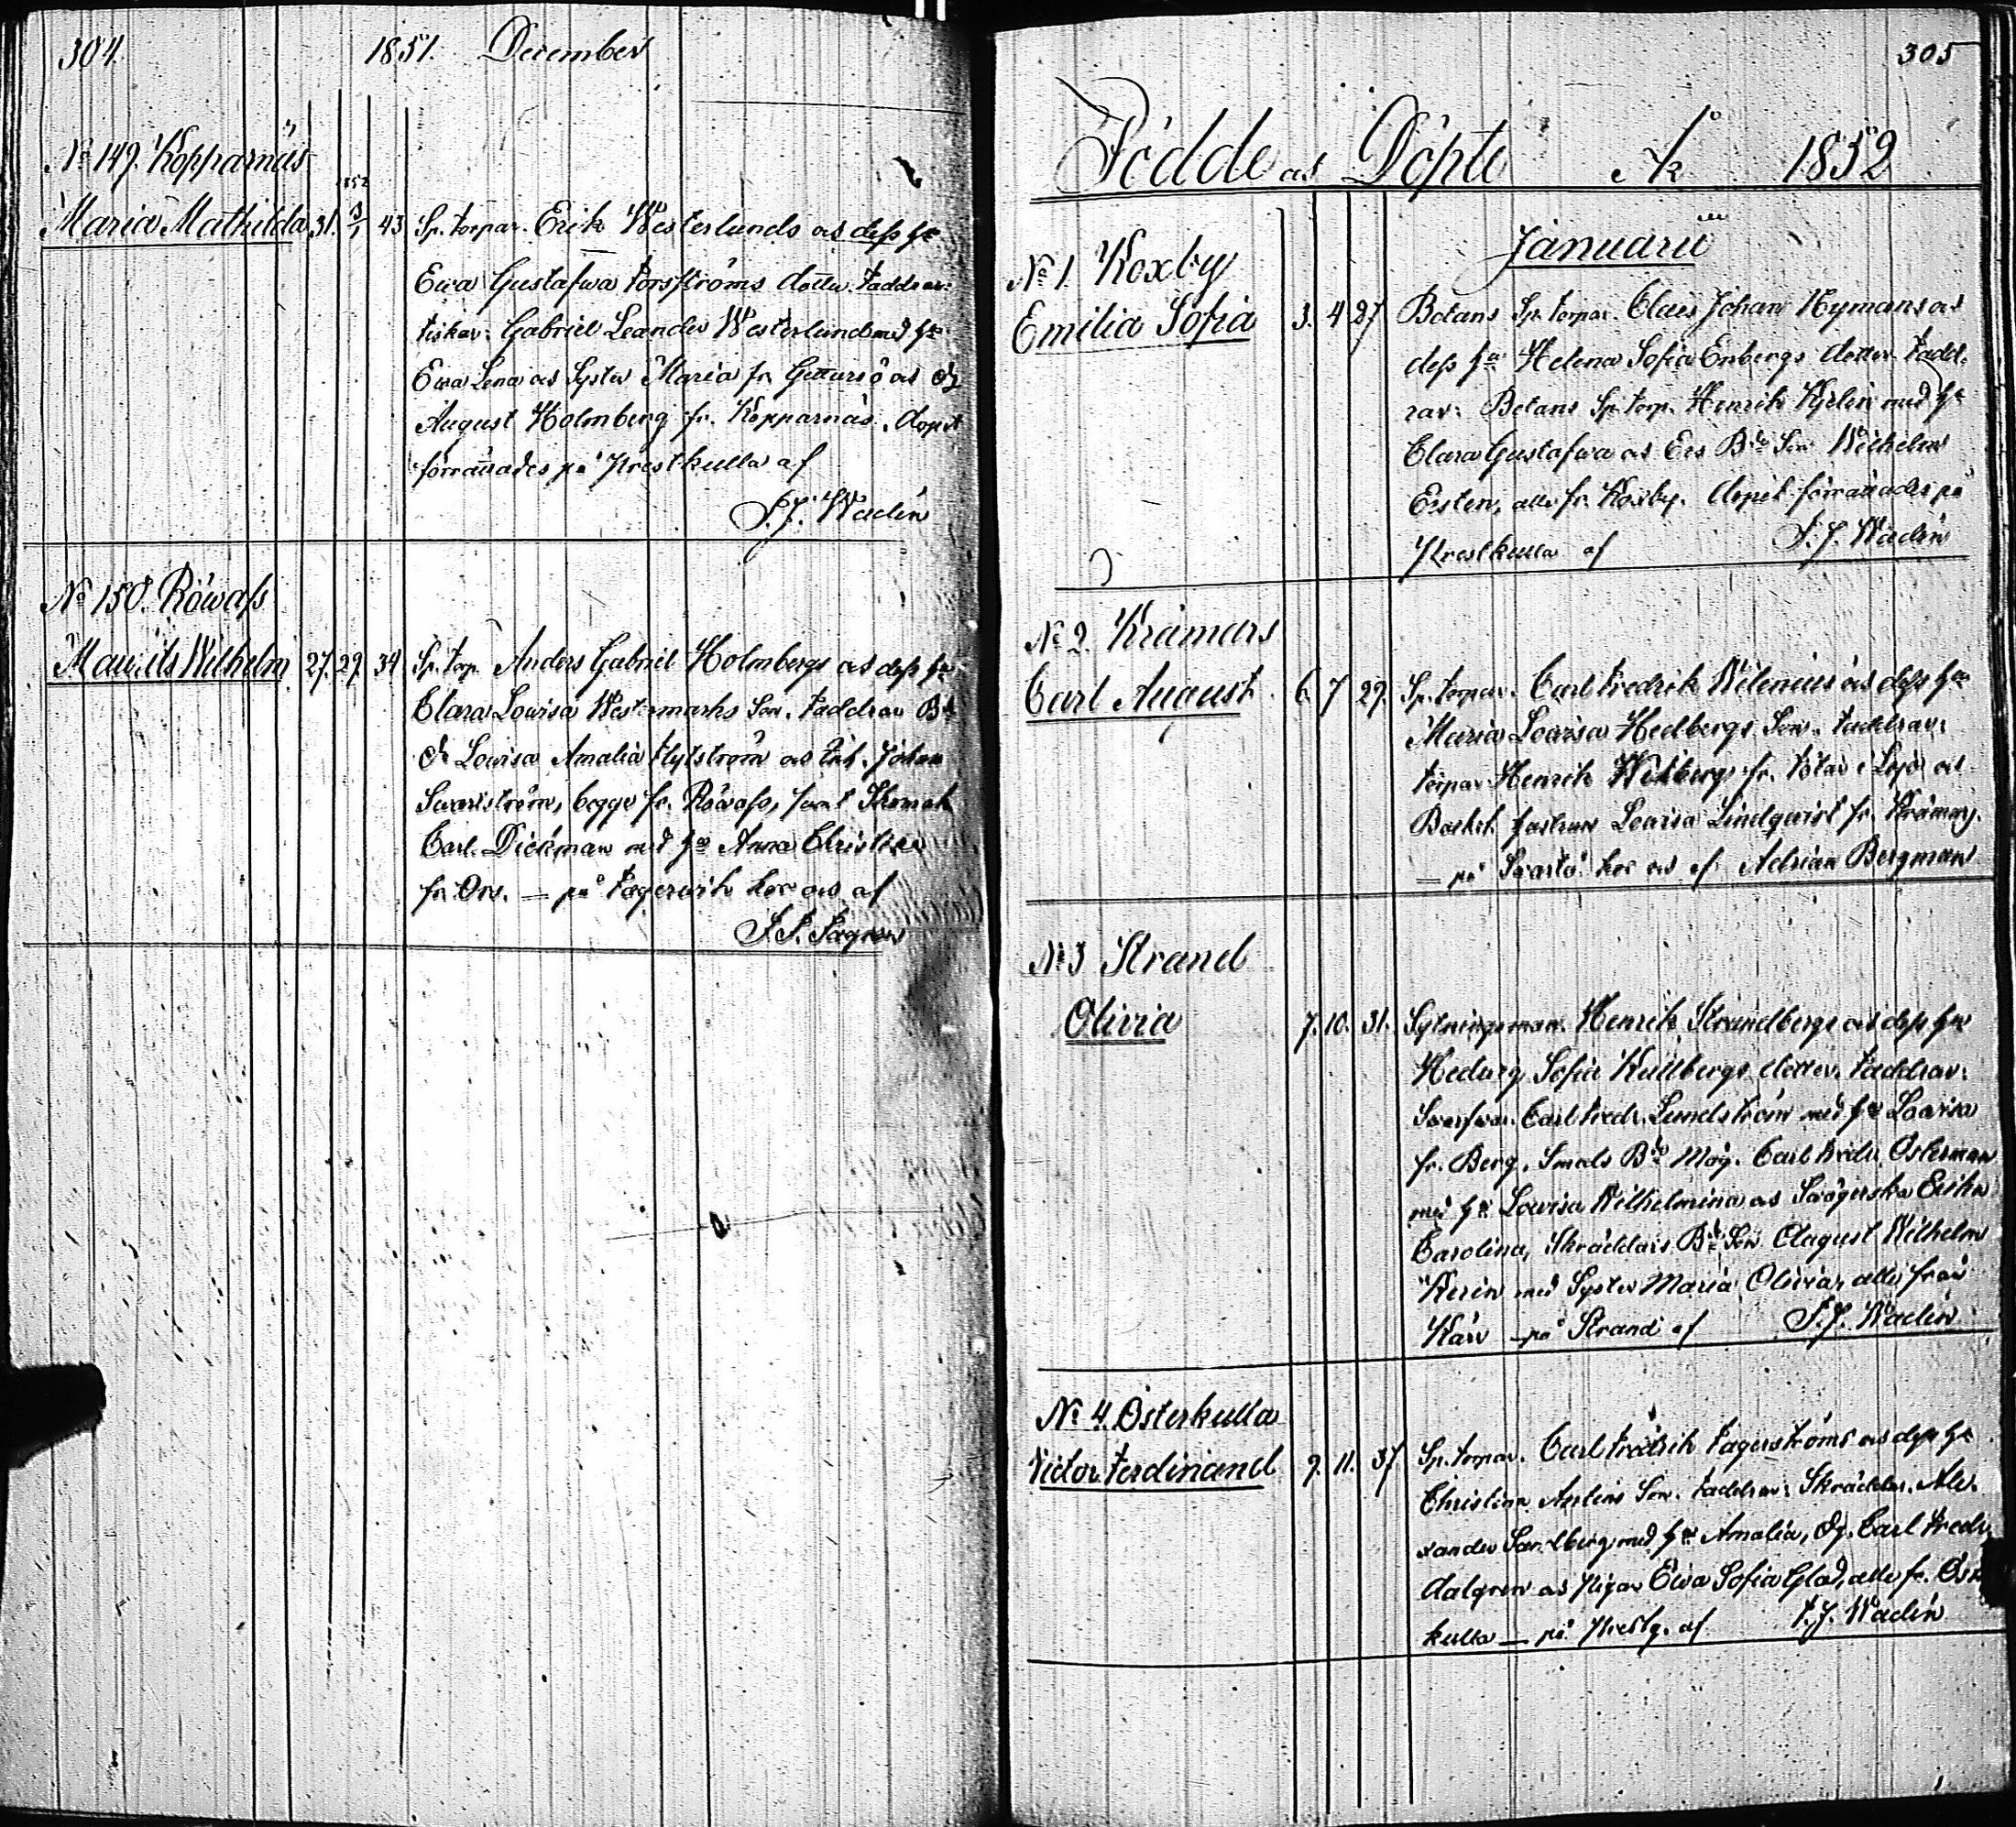 304.
1851. December
No 149. Kopparnäs
1852
Maria Mathilda 31. 3/1 43 Sp. torpar. Erik Westerlunds os dess hu
Ewa Gustafwa Forsströms dotter. Faddrar:
fiskar. Gabriel Leander Westerlund med hu
Ewa Lena os Syster Maria fr. os
August Holmberg fr. Kopparnäs. Dopet
förrättades på Prestkulla af
F. J. Wadén
No 150. Röwass
Maurits Wilhelm 27. 29. 34 Sp. torp. Anders Gabriel Holmbergs os dess hu
Clara Lowisa Westermarks Son. Faddrar Bd
dr Lowisa Amalia Flytström os Johan
Swartström, begge fr. Röwass, samt
Carl Dickman med hu Anna Christina
fr. Ors. — på Fagerwik hos os af
305
Födde os Döpte År 1852
Januarii
No 1. Koxby
Emilia Sofia 3. 4 27 Betans Sp. torpar. Claes Johan Nymans os
dess hu Helena Sofia Enbergs dotter. Fadd-
rar: Betans Sp. torp. Henrik med hu
Clara Gustafwa os Ers Bde Son Wilhelm
Ersten, alla fr. Koxby. Dopet förrättades på
Prestkulla af F. J. Wadén
No 2. Krämars
Carl August 6. 7 29. Sp. torpar. Carl Fredrik Wilenius os dess hu
Maria Lowisa Hedbergs Son. Faddrar:
torpar Henrik Wikberg fr. i Lojo os
Lowisa Lindqvist fr. Krämars.
— på Svartå hos os af Adrian Bergman
No 3 Strand
Olivia 7. 10. 31. Sytningsman Henrik Strandbergs os dess hu
Hedwig Sofia Kullbergs dotter. Faddrar:
Swarfwar. Carl Fredr. Lundström med hu Lowisa
fr. Berg, Smeds Bde Måg. Carl Fredr. Österman
med hu Lowisa Wilhelmina os Swägerska Erika
Carolina, Skräddars Bde Son August Wilhelm
med Syster Maria Olivia, alla från
Kärr — på Strand af F. J. Wadén
No 4. Österkulla
Victor Ferdinand 9. 11. 37 Sp. torpar. Carl Fredrik Fagerströms os dess hu
Christina Son. Faddrar: Skräddar. Ale-
xander med hu Amalia, Dr. Carl Fredr.
Dalgren os Pigan Ewa Sofia Glad, alla fr. Öster
kulla — på Prestg. af F. J. Wadén